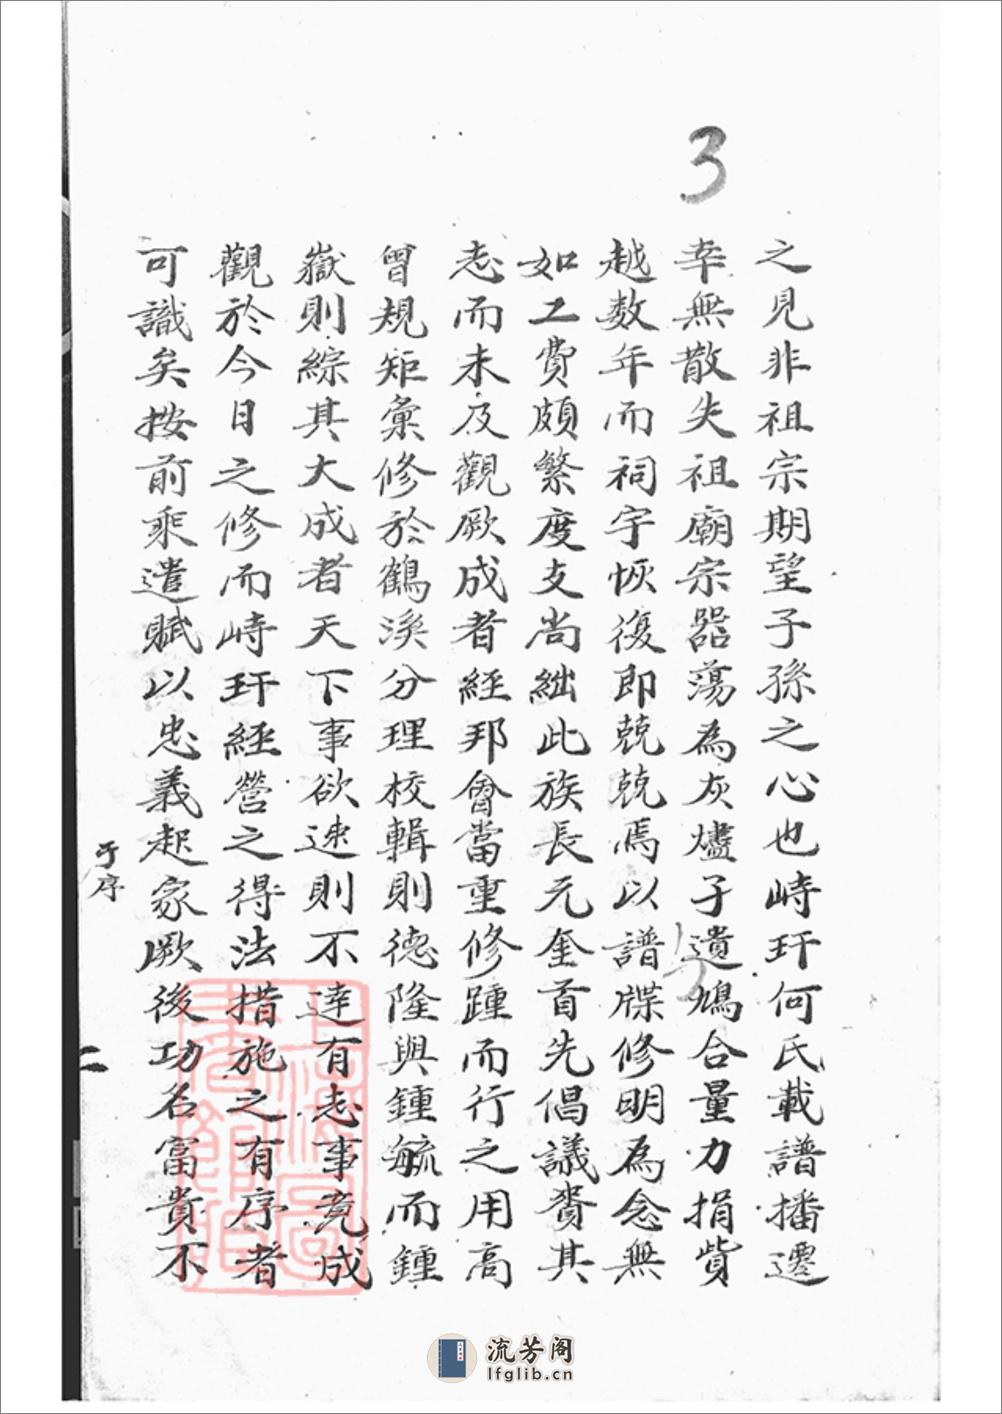 3
之見非祖宗期望子孫之心也峙玕何氏載譜播遷
幸無散失祖廟宗器蕩為灰燼子遺鳩合量力捐貲
越数年而祠宇恢復即兢兢焉以譜牒修明為念無
如工費頗繁度支尚絀此族長元奎首先倡議賚其
志而未及觀厥成者經邦會當重修踵而行之用高
曾規矩彙修於鶴溪分理校輯則德隆與鍾毓而鍾
嶽則綜其大成者天下事欲速則不達有志事竟成
觀於今日之修而峙玕經營之得法措施之有序者
可識矣按前乘遣賦以忠義起家厥後功名富貴不
于序
二
上海圖書館藏
流芳阁
lfglib.cn